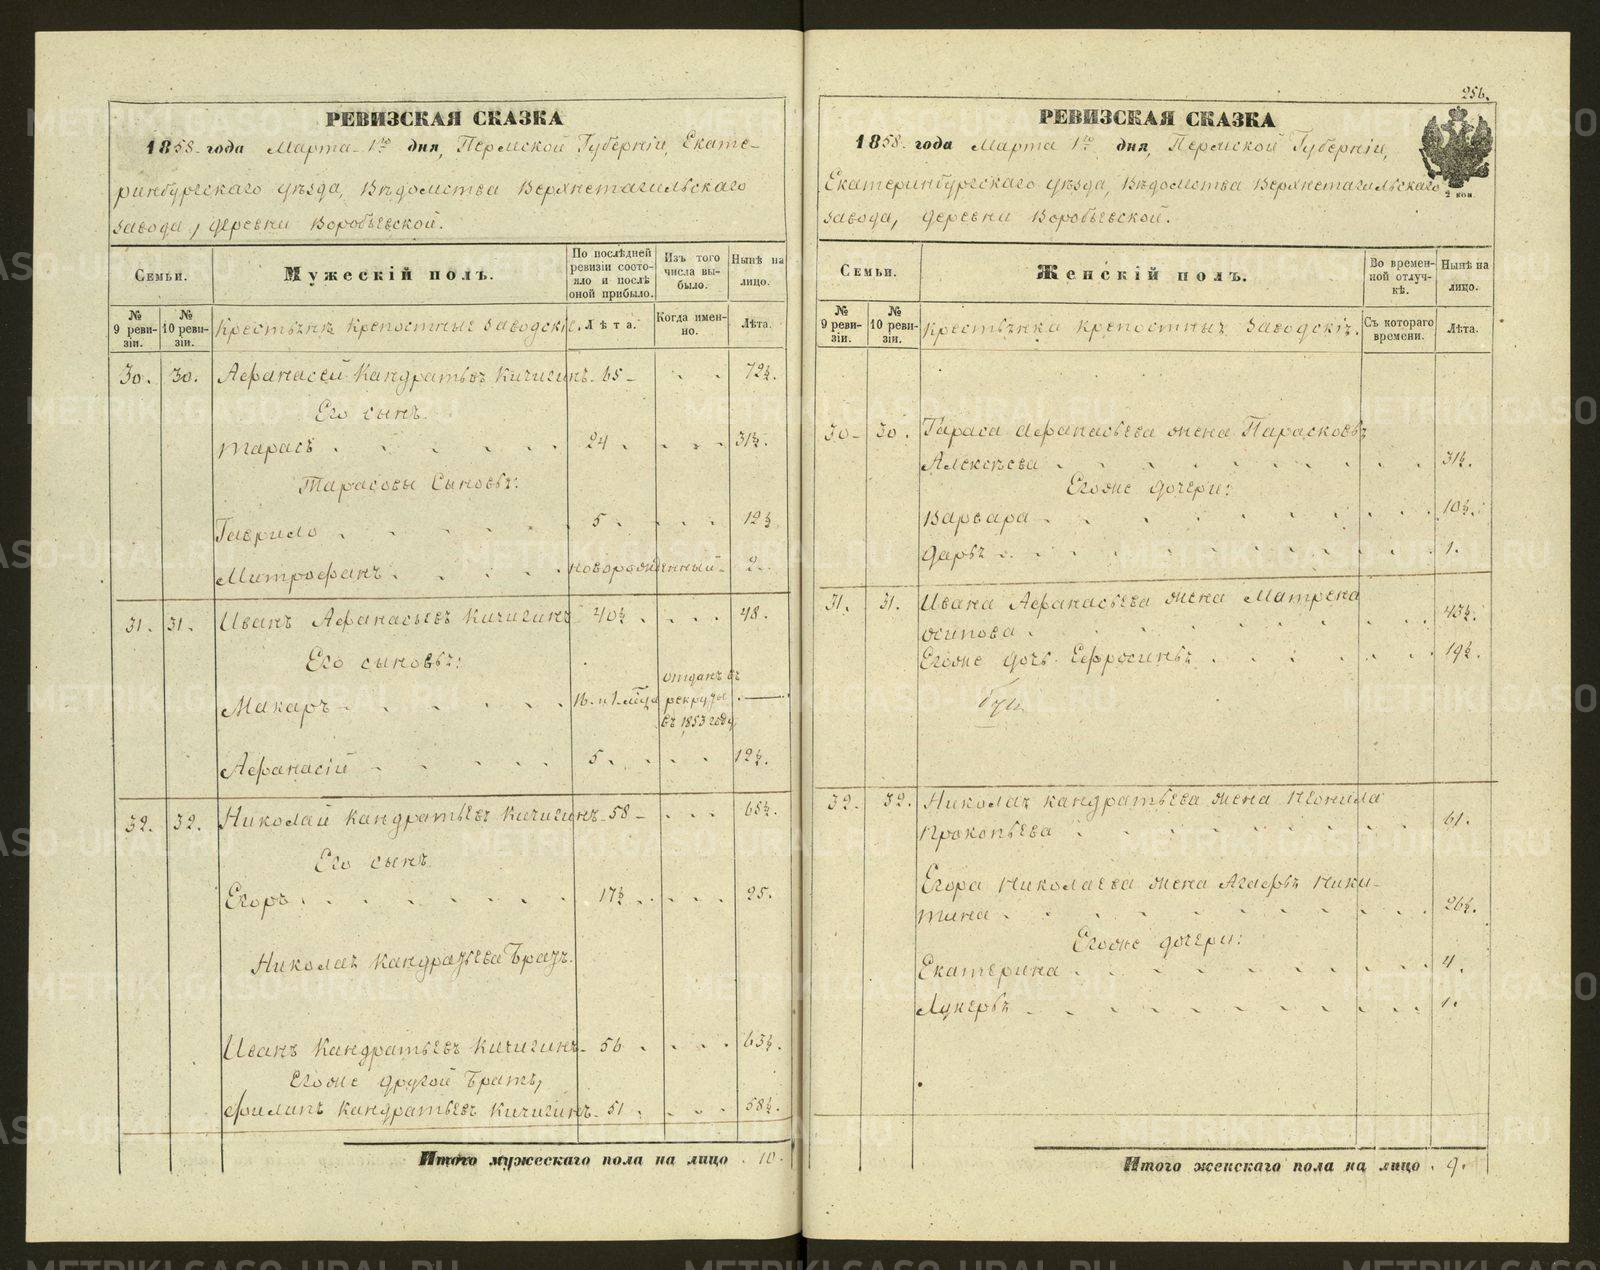 РЕВИЗСКАЯ СКАЗКА
1858 года Марта 1го дня, Пермской Губерніи, Екате-
ринбургскаго уѣзда, Вѣдомства Верхнетагильскаго
завода, деревни Воробьевской.
Семьи.
Мужескій полъ.
По послѣдней ревизіи состояло и послѣ оной прибыло.
Изъ того числа выбыло.
Нынѣ на лицо.
№ 9 ревизіи.
№ 10 ревизіи.
Крестьяне крепостные заводскіе.
Лѣта.
Когда именно.
Лѣта.
30. 30. Афанасей Кандратьевъ Кичигинъ 65 72½.
Его сынъ
Тарасъ 24 31½.
Тарасовы сыновья:
Гаврило 5 12½
Митрофанъ новорожденный 2.
31. 31. Иванъ Афанасьевъ Кичигинъ 40½ 48.
Его сыновья:
Макаръ 16 и 1 мѣсяца отданъ въ рекруты въ 1853 году
Афанасій 5 12½.
32. 32. Николай Кандратьевъ Кичигинъ 58 65½.
Его сынъ
Егоръ 17½ 25.
Николая Кандратьева братья
Иванъ Кандратьевъ Кичигинъ 56 63½.
Егоже другой братъ,
Филипъ Кандратьевъ Кичигинъ 51 58½.
Итого мужескаго пола на лицо 10.
256.
РЕВИЗСКАЯ СКАЗКА
1858 года Марта 1го дня, Пермской Губерніи,
Екатеринбургскаго уѣзда, Вѣдомства Верхнетагильскаго
завода, деревни Воробьевской.
2 коп.
Семьи.
Женскій полъ.
Во временной отлучкѣ.
Нынѣ на лицо.
№ 9 ревизіи.
№ 10 ревизіи.
Крестьянка крепостныя заводскія.
Съ котораго времени.
Лѣта.
30. 30. Тараса Афанасьева жена Парасковья
Алексѣева 31½.
Егоже дочери:
Варвара 10½.
Дарья 1.
31. 31. Ивана Афанасьева жена Матрена
Осипова 43½.
Егоже дочь Ефросинья 19½.
32. 32. Николая Кандратьева жена Неонила
Прокопьева 61.
Егора Николаева жена Агафья Ники-
тина 26½.
Егоже дочери:
Екатерина 4.
Лукерья 1.
Итого женскаго пола на лицо 9.
METRIKI.GASO-URAL.RU